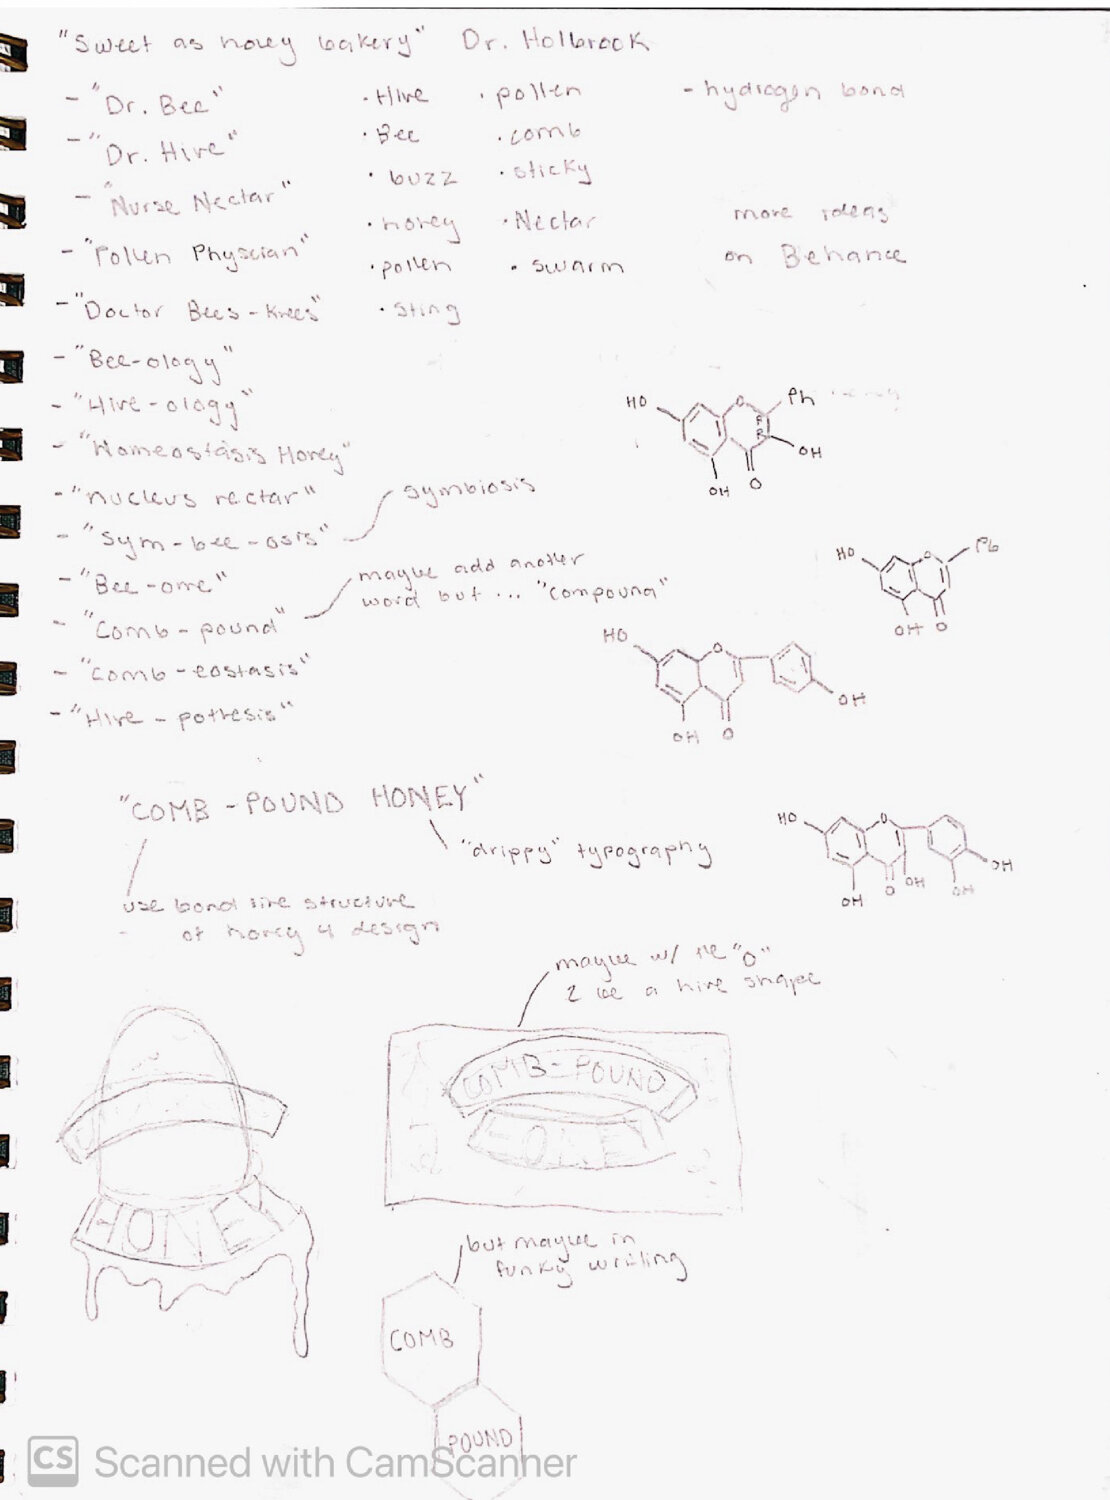 "Sweet as honey bakery" Dr. Holbrook
- "Dr. Bee"
- "Dr. Hive"
- "Nurse Nectar"
- "Pollen Physcian"
- "Doctor Bees-Knees"
- "Bee-ology"
- "Hive-ology"
- "Homeostasis Honey"
- "nucleus nectar"
- "Sym-bee-osis"
symbiosis
- "Bee-ome"
- "Comb-pound"
maybe add another
word but ... "compound"
- "Comb-eostasis"
- "Hive-pothesis"
· Hive
· Bee
· buzz
· honey
· pollen
· sting
· pollen
· comb
· sticky
· Nectar
· swarm
- hydrogen bond
more ideas
on Behance
HO
O
Ph
R
R
OH
OH
O
HO
O
Ph
OH
O
HO
O
OH
OH
O
"COMB-POUND HONEY"
"drippy" typography
use bond line structure
of honey 4 design
HO
O
OH
O
OH
OH
OH
maybe w/ the "O"
2 be a hive shape
COMB-POUND
HONEY
HONEY
but maybe in
funky writing
COMB
POUND
CS Scanned with CamScanner